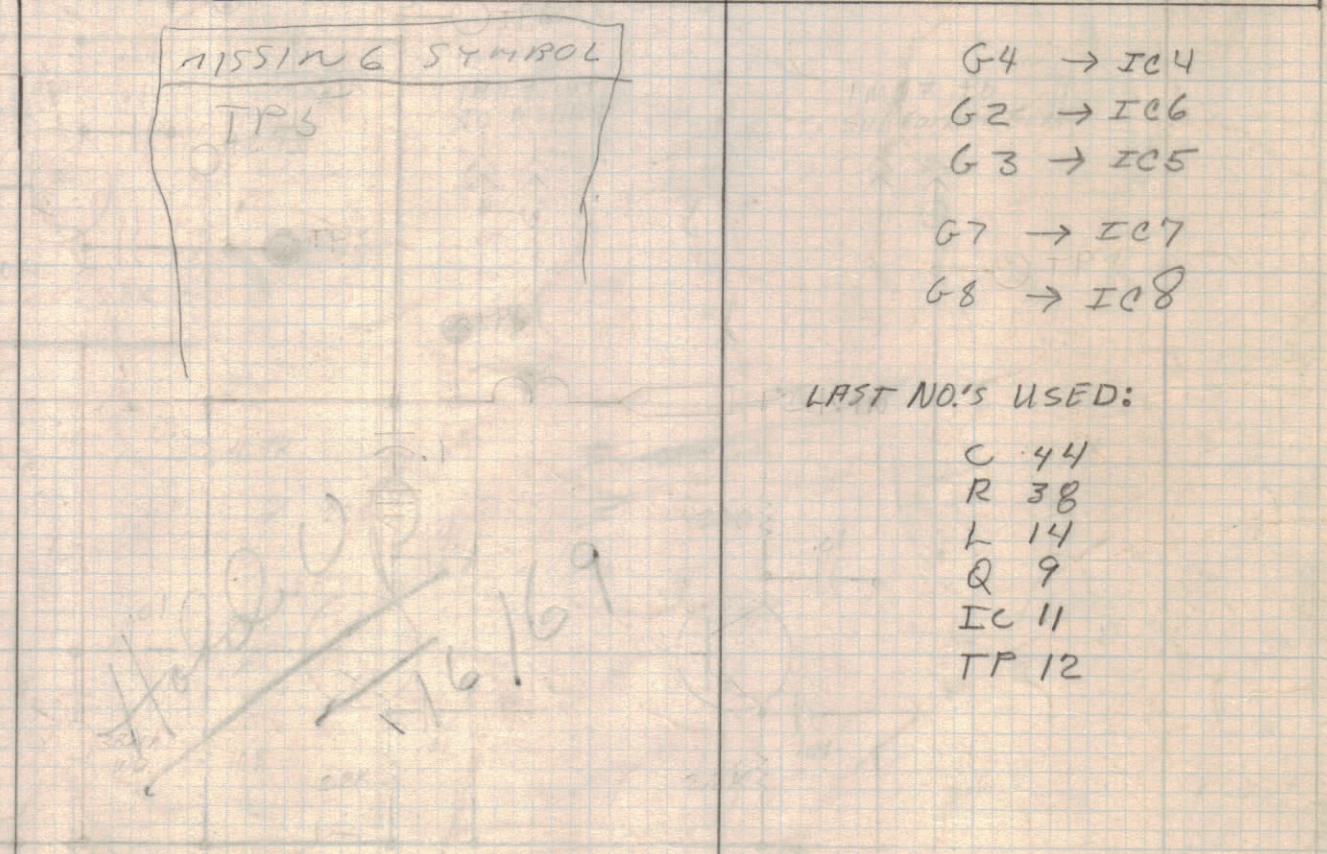 MISSING SYMBOL
TP5
Hold UP
G4 → IC4
G2 → IC6
G3 → IC5
G7 → IC7
G8 → IC8
LAST NO.'S USED:
C 44
R 38
L 14
Q 9
IC 11
TP 12